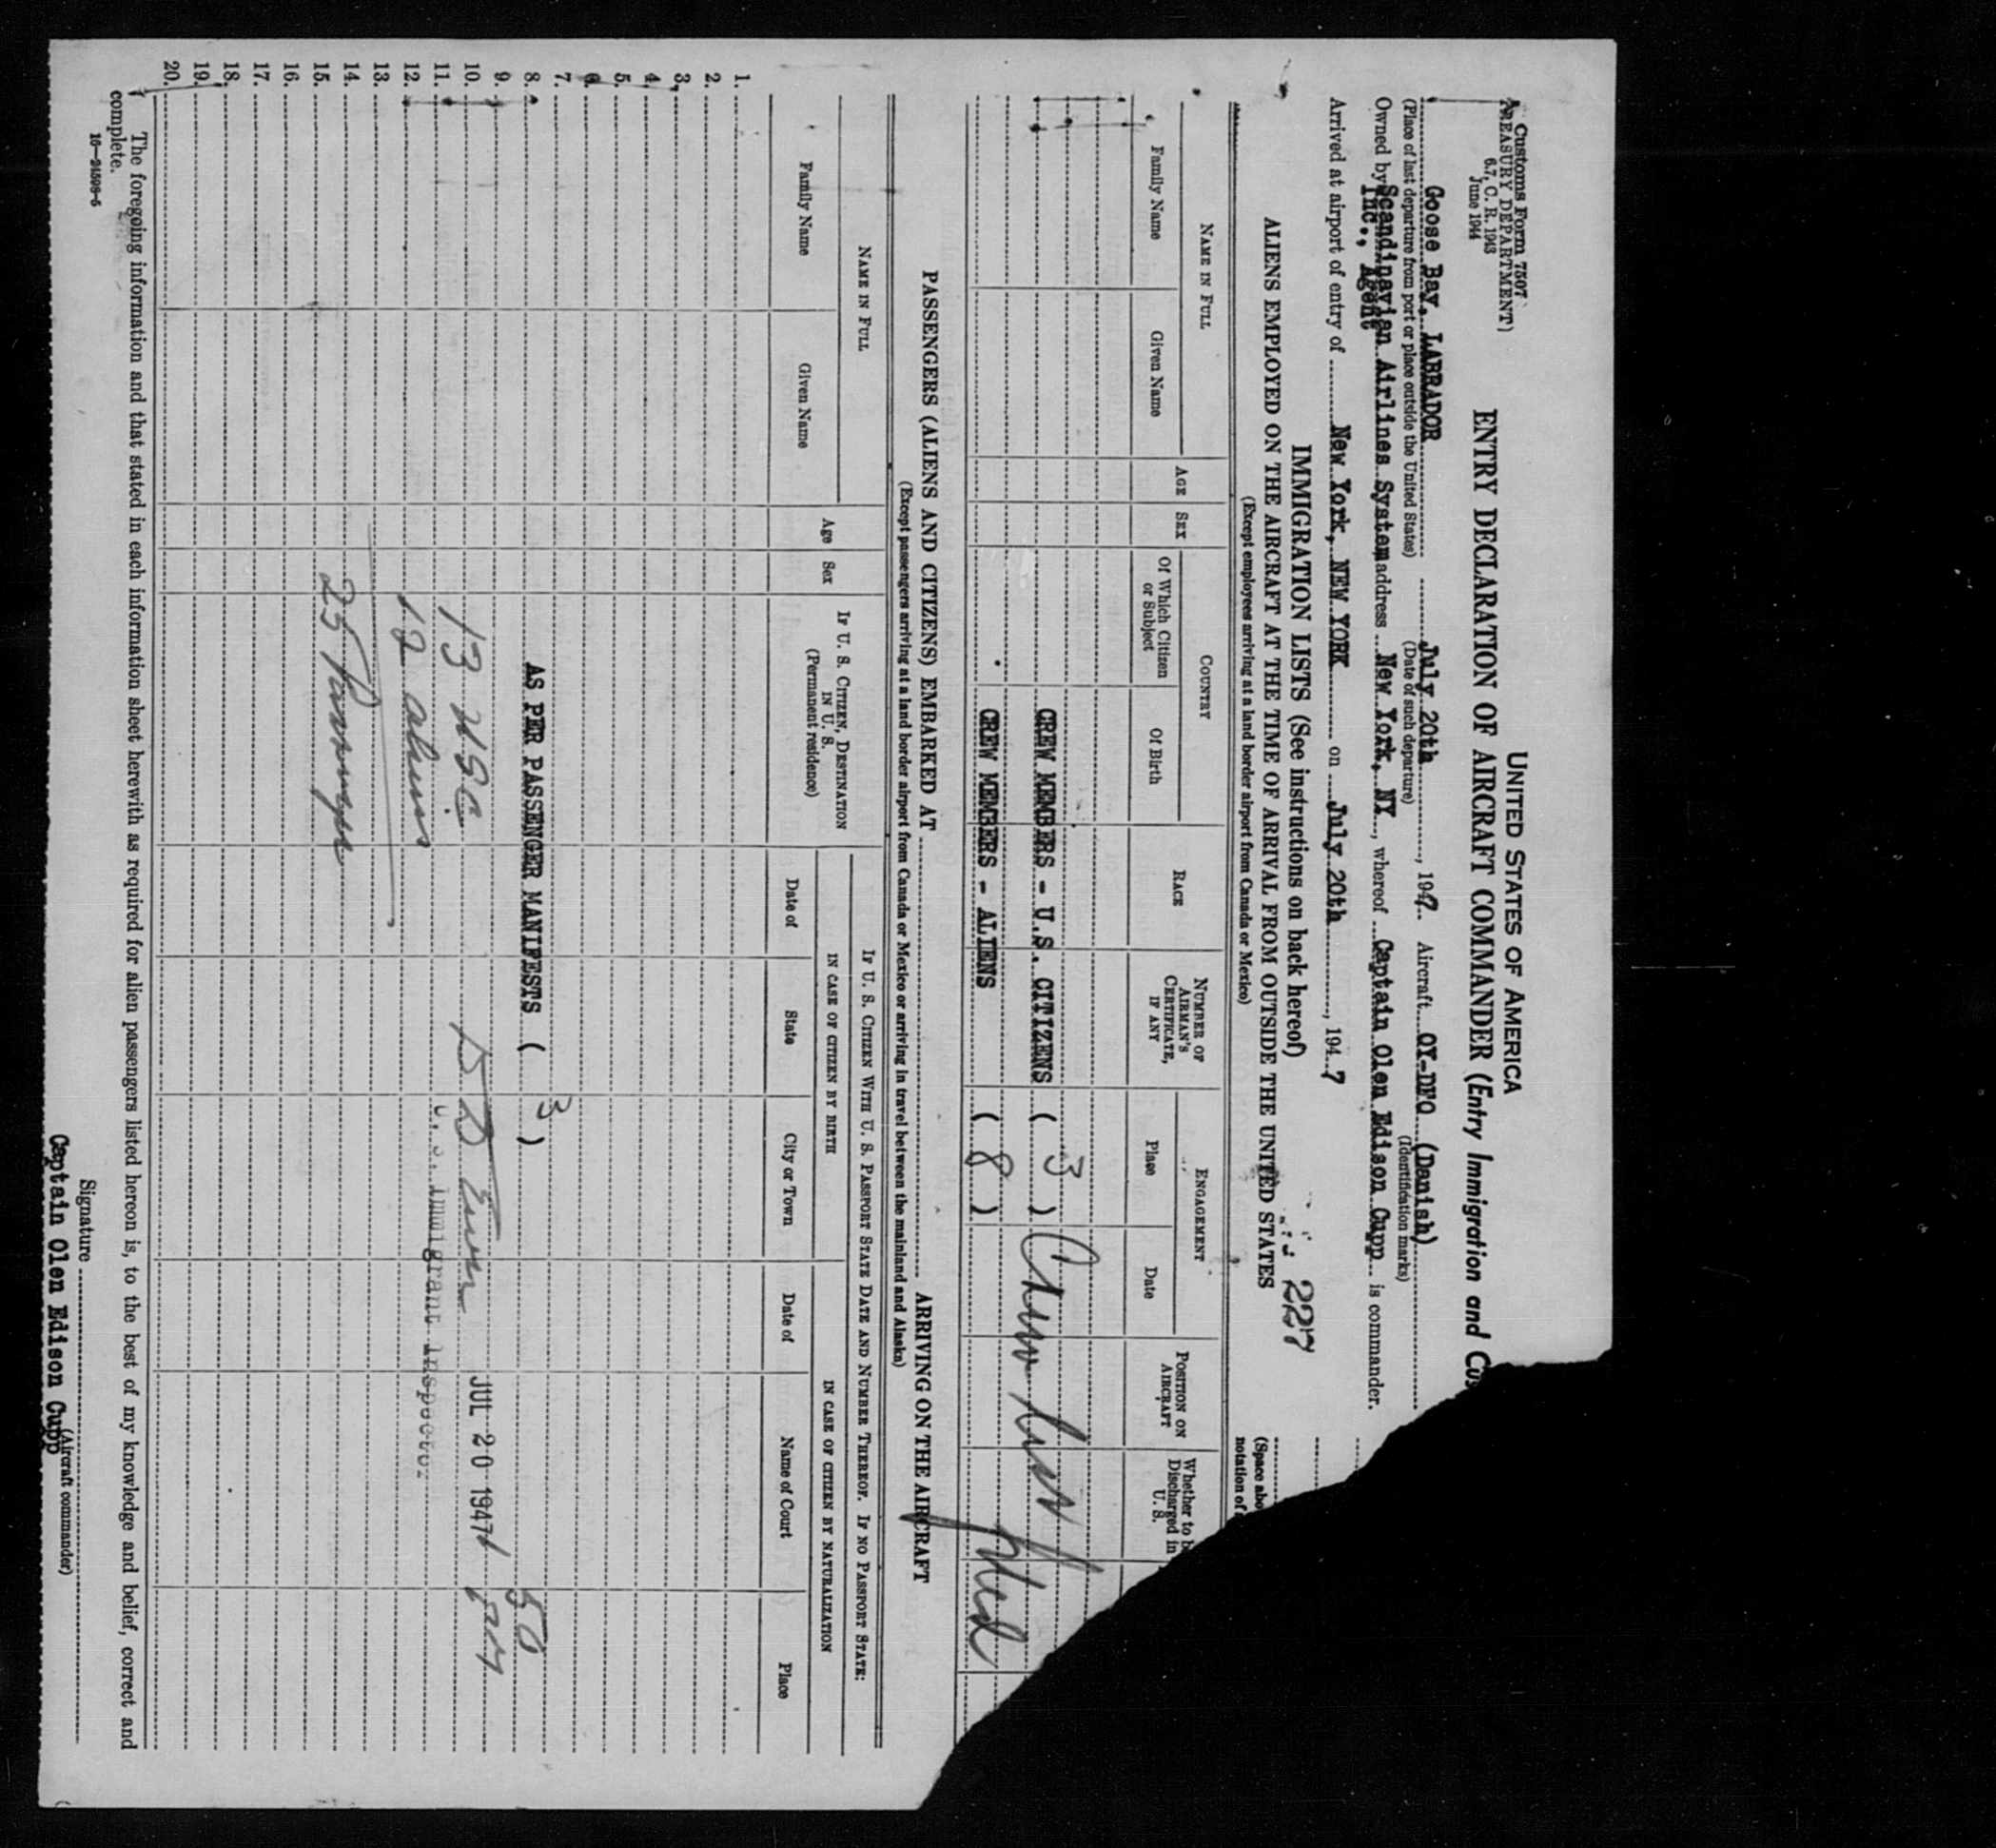 Customs Form 7507
TREASURY DEPARTMENT)
6.7, C. R. 1943
June 1944
UNITED STATES OF AMERICA
ENTRY DECLARATION OF AIRCRAFT COMMANDER (Entry Immigration and Cus
Goose Bay, LABRADOR July 20th, 1947. Aircraft OY-DFO (Danish)
(Place of last departure from port or place outside the United States) (Date of such departure) (Identification marks)
Owned by Scandinavian Airlines System address New York, NY, whereof Captain Olen Edison Cupp is commander.
Inc., Agent
Arrived at airport of entry of New York, NEW YORK on July 20th, 1947
227
IMMIGRATION LISTS (See instructions on back hereof)
ALIENS EMPLOYED ON THE AIRCRAFT AT THE TIME OF ARRIVAL FROM OUTSIDE THE UNITED STATES
(Space abo
notation of
(Except employees arriving at a land border airport from Canada or Mexico)
NAME IN FULL AGE SEX COUNTRY RACE NUMBER OF AIRMAN'S CERTIFICATE, IF ANY ENGAGEMENT POSITION ON AIRCRAFT Whether to b Discharged in U. S.
Family Name Given Name Of Which Citizen or Subject Of Birth Place Date
CREW MEMBERS - U.S. CITIZENS ( 3 ) Crew list
CREW MEMBERS - ALIENS ( 8 ) filed
PASSENGERS (ALIENS AND CITIZENS) EMBARKED AT ARRIVING ON THE AIRCRAFT
(Except passengers arriving at a land border airport from Canada or Mexico or arriving in travel between the mainland and Alaska)
NAME IN FULL Age Sex IF U. S. CITIZEN, DESTINATION IN U. S. (Permanent residence) IF U. S. CITIZEN WITH U. S. PASSPORT STATE DATE AND NUMBER THEREOF. IF NO PASSPORT STATE:
IN CASE OF CITIZEN BY BIRTH IN CASE OF CITIZEN BY NATURALIZATION
Family Name Given Name Date of State City or Town Date of Name of Court Place
1.
2.
3.
4.
5.
6.
7.
8. AS PER PASSENGER MANIFESTS ( 3 )
9. 50
10. 13 USC JUL 20 1947 PM
11. U. S. Immigrant Inspector
12. 12 aliens
13.
14.
15. 25 Passengers
16.
17.
18.
19.
20.
The foregoing information and that stated in each information sheet herewith as required for alien passengers listed hereon is, to the best of my knowledge and belief, correct and
complete.
16—24598-5
Signature
(Aircraft commander)
Captain Olen Edison Cupp